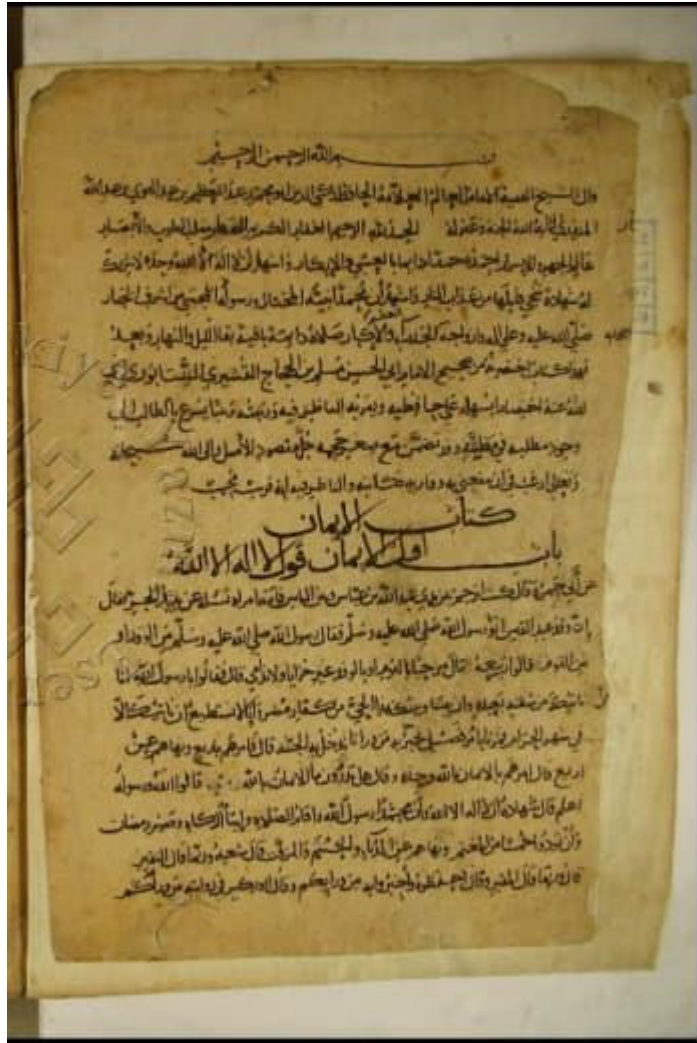 بسم الله الرحمن الرحيم
قال الشيخ الفقيه الامام العالم العلامة الحافظ زكي الدين ابو محمد عبد العظيم بن عبد القوي بن عبد الله
المنذري اثابه الله الجنة الحمد لله الرحيم الغفار الكريم القهار مقلب القلوب والابصار
عالم الجهر والاسرار احمده حمدا دائما بالعشي والابكار واشهد ان لا اله الا الله وحده لا شريك
له شهادة تنجي قايلها من عذاب النار واشهد ان محمدا نبيه المختار ورسوله المجتبى من اشرف
صلى الله عليه وعلى اله وازواجه صلاة دايمة باقية بقا الليل والنهار وبعد
فهذا كتاب اختصرته من صحيح الامام ابي الحسين مسلم بن الحجاج القشيري النيسابوري رضي
الله عنه اختصارا يسهله على حافظيه ويقربه للناظر فيه ورتبته ترتيبا يسرع بالطالب الى
وجود مطلبه في مظنته وقد تضمن مع صغر حجمه جل مقصود الاصل والى الله سبحانه
وتعالى ارغب في ان ينفعني به وقاريه وكاتبه والناظر فيه انه قريب مجيب
كتاب الايمان
باب اول الايمان قول لا اله الا الله
عن ابي جمرة قال كنت اترجم بين يدي عبد الله بن عباس وبين الناس فاتته امراة تسله عن نبيذ الجر فقال
ان وفد عبد القيس اتوا رسول الله صلى الله عليه وسلم فقال رسول الله صلى الله عليه وسلم من الوفد او
من القوم قالوا ربيعة قال مرحبا بالقوم او بالوفد غير خزايا ولا ندامى قال فقالوا يا رسول الله انا
ناتيك من شقة بعيدة وان بيننا وبينك هذا الحي من كفار مضر وانا لا نستطيع ان ناتيك الا
في شهر الحرام فمرنا بامر فصل نخبر به من ورانا ندخل به الجنة قال فامرهم باربع ونهاهم عن
اربع قال امرهم بالايمان بالله وحده وقال هل تدرون ما الايمان بالله قالوا الله ورسوله
اعلم قال شهادة ان لا اله الا الله وان محمدا رسول الله واقام الصلوة وايتا الزكاة وصوم رمضان
وان تودوا خمسا من المغنم ونهاهم عن الدبا والحنتم والمزفت قال شعبة وربما قال النقير
قال وربما قال المقير وقال احفظوه واخبروا به من ورايكم وقال ابو بكر في روايته من وراكم